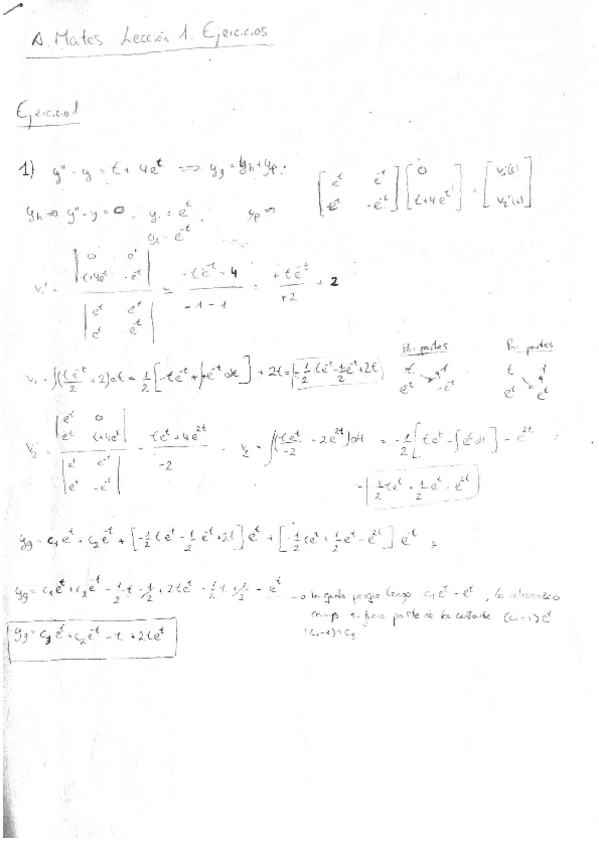 A. Mates Lección 1. Ejercicios
Ejercicio 1
1) y'' - y = t + 4e^t ⇒ y_g = y_h + y_p.
[e^t e^-t; e^t -e^-t] [0; t+4e^t] = [v_1'(t); v_2'(t)]
y_h ⇒ y'' - y = 0. y_1 = e^t, y_p
y_2 = e^-t
v_1' = |0 e^-t; t+4e^t -e^-t| / |e^t e^-t; e^t -e^-t| = (-te^-t - 4) / (-1-1) = (+te^-t) / (+2) + 2
Por partes Por partes
v_1 = ∫(te^-t/2 + 2)dt = 1/2 [-te^-t + ∫e^-t dt] + 2t = -1/2 te^-t - 1/2 e^-t + 2t
t 1 t 1
e^-t -e^-t e^t e^t
v_2' = |e^t 0; e^t t+4e^t| / |e^t e^-t; e^t -e^-t| = (te^t + 4e^2t) / (-2) v_2 = ∫(te^t/-2 - 2e^2t)dt = -1/2 [te^t - ∫e^t dt] - e^2t =
-1/2 te^t + 1/2 e^t - e^2t
y_g = c_1e^t + c_2e^-t + [-1/2 te^-t - 1/2 e^-t + 2t] e^t + [-1/2 te^t + 1/2 e^t - e^2t] e^-t =
y_g = c_1e^t + c_2e^-t - 1/2 t - 1/2 + 2te^t - 1/2 t + 1/2 - e^t → porque tengo c_1e^t - e^t, lo
si fuera parte de la constante (c_1-1)e^t
(c_1-1) = c_3
y_g = c_3e^t + c_2e^-t - t + 2te^t